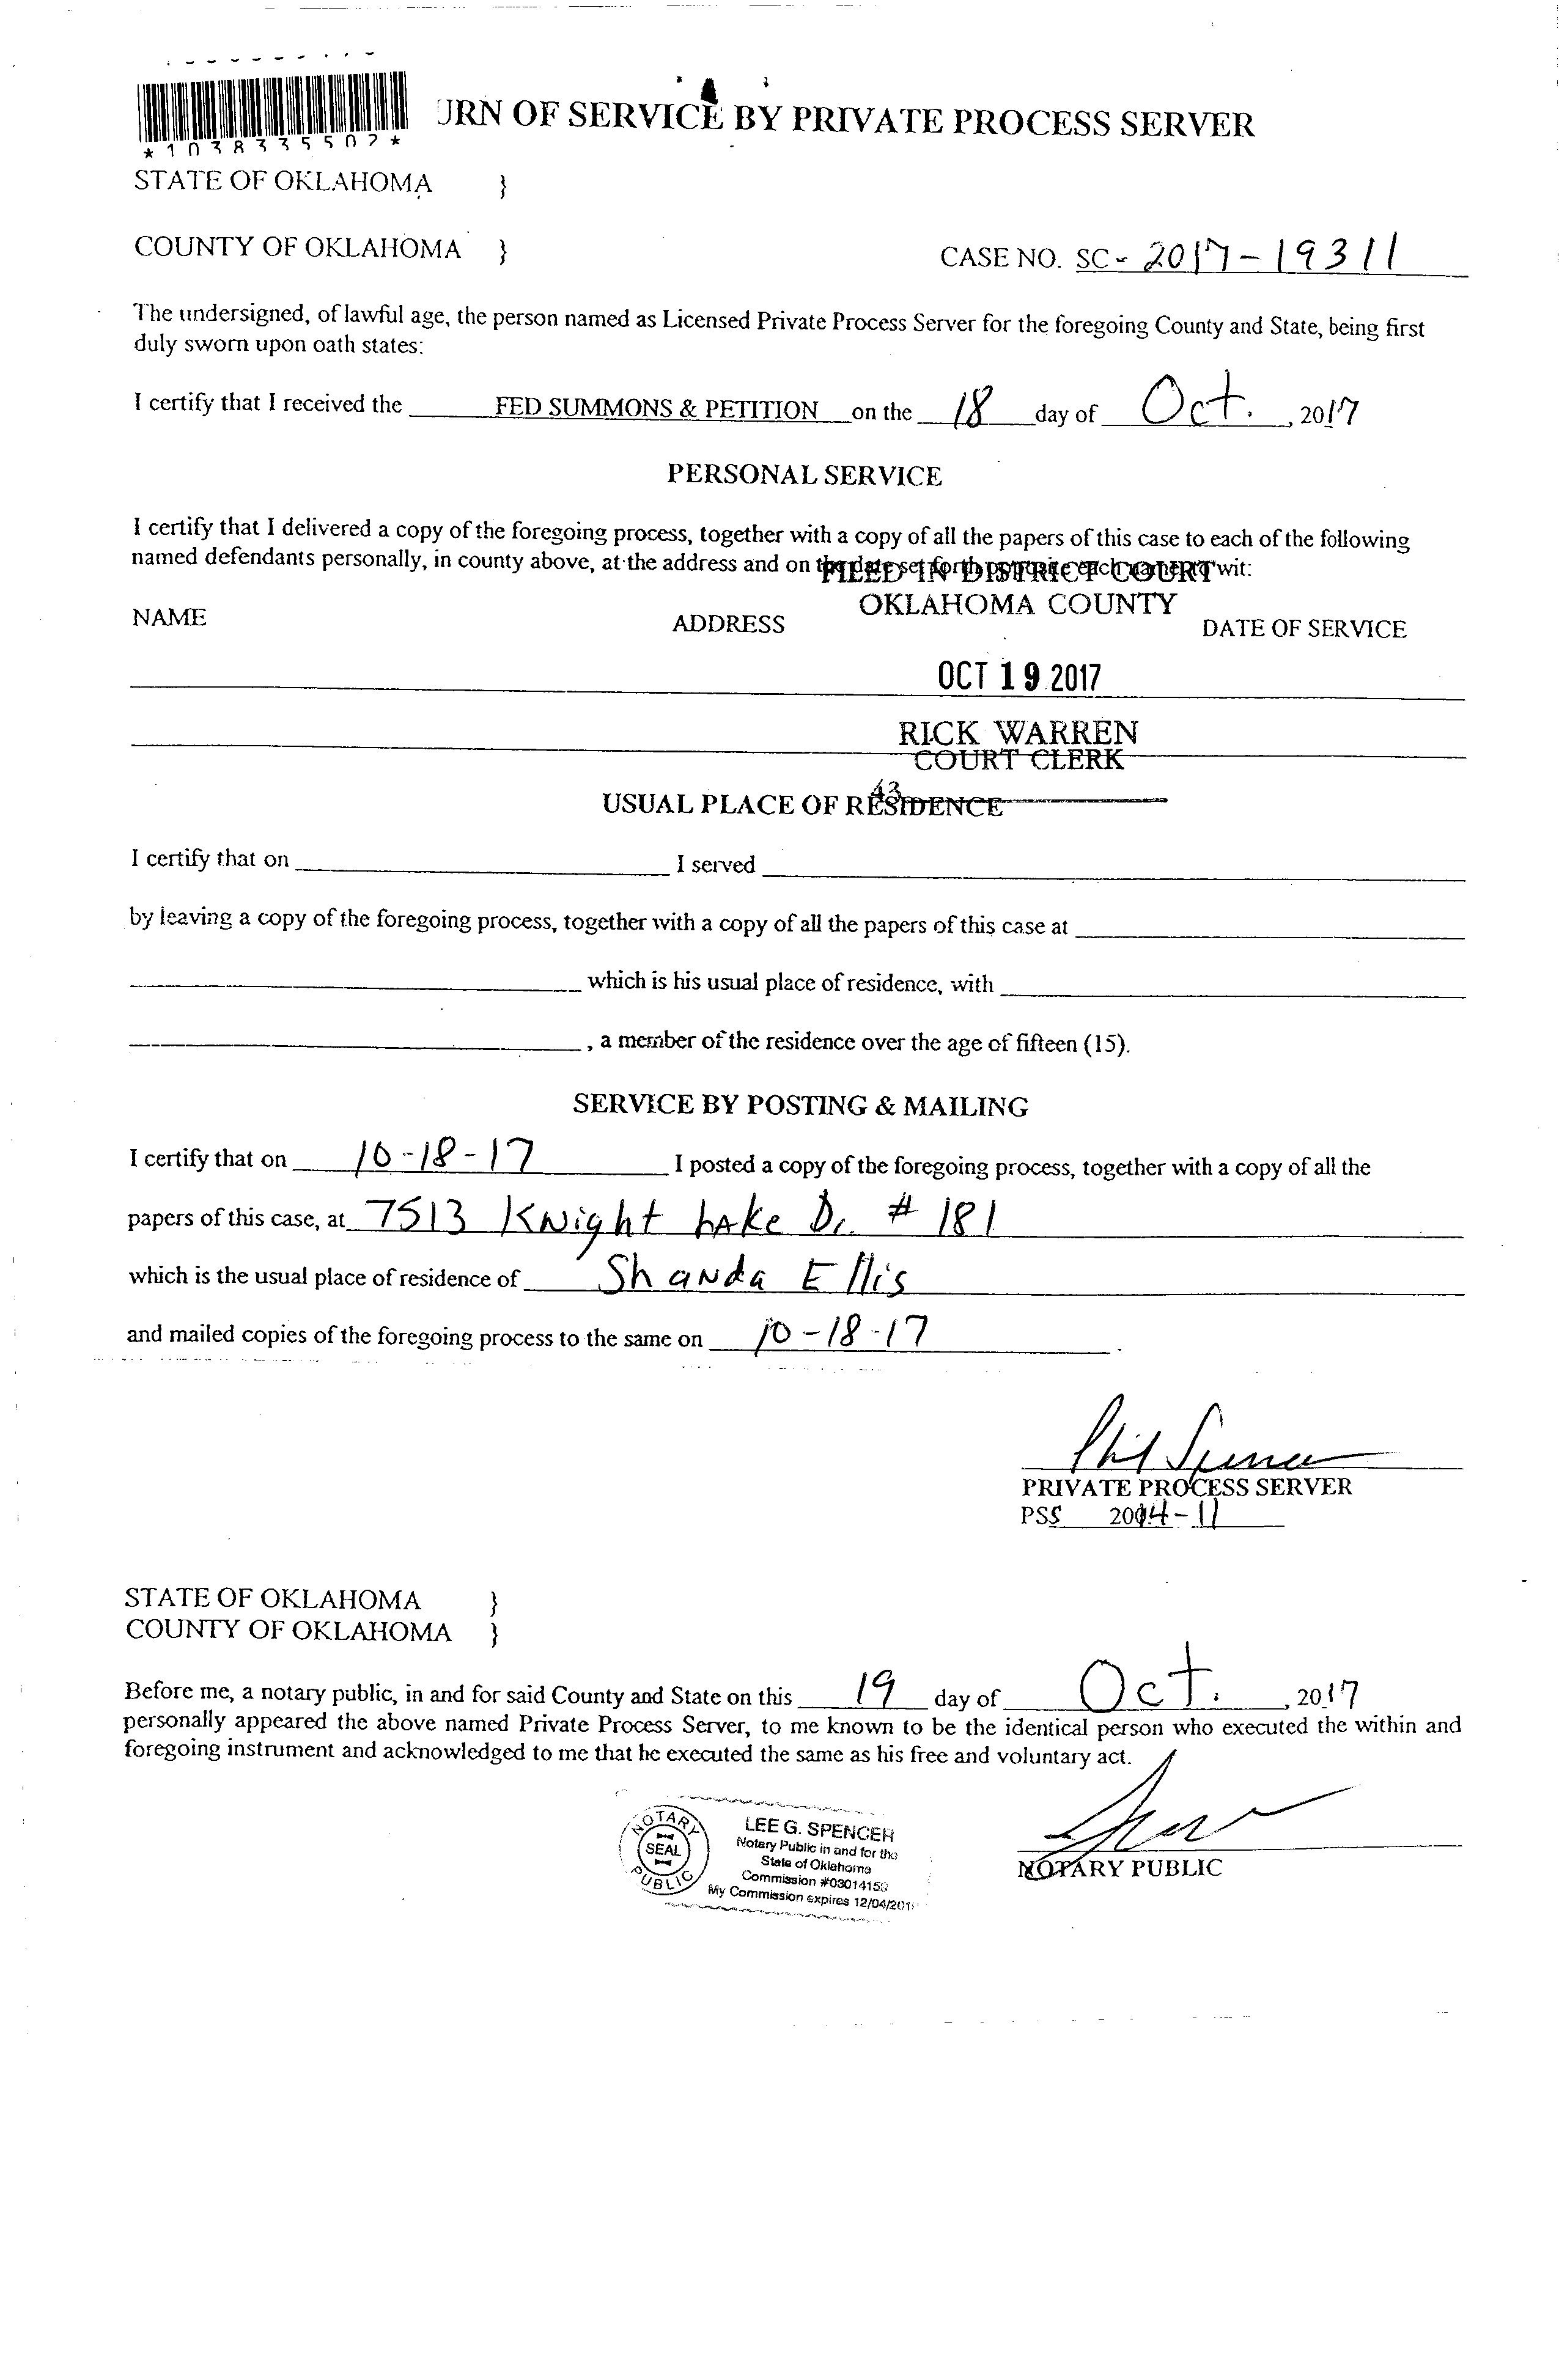 URN OF SERVICE BY PRIVATE PROCESS SERVER
*1038335502*
STATE OF OKLAHOMA }
COUNTY OF OKLAHOMA }
CASE NO. SC - 2017-19311
The undersigned, of lawful age, the person named as Licensed Private Process Server for the foregoing County and State, being first
duly sworn upon oath states:
I certify that I received the FED SUMMONS & PETITION on the 18 day of Oct. , 2017
PERSONAL SERVICE
I certify that I delivered a copy of the foregoing process, together with a copy of all the papers of this case to each of the following
named defendants personally, in county above, at the address and on the date set forth wit:
FILED IN DISTRICT COURT
OKLAHOMA COUNTY
NAME ADDRESS DATE OF SERVICE
OCT 19 2017
RICK WARREN
COURT CLERK
43
USUAL PLACE OF RESIDENCE
I certify that on I served
by leaving a copy of the foregoing process, together with a copy of all the papers of this case at
which is his usual place of residence, with
, a member of the residence over the age of fifteen (15).
SERVICE BY POSTING & MAILING
I certify that on 10-18-17 I posted a copy of the foregoing process, together with a copy of all the
papers of this case, at 7513 Knight Lake Dr. # 181
which is the usual place of residence of Shanda Ellis
and mailed copies of the foregoing process to the same on 10-18-17 .
Phil Spencer
PRIVATE PROCESS SERVER
PSS 2014-11
STATE OF OKLAHOMA }
COUNTY OF OKLAHOMA }
Before me, a notary public, in and for said County and State on this 19 day of Oct. , 2017
personally appeared the above named Private Process Server, to me known to be the identical person who executed the within and
foregoing instrument and acknowledged to me that he executed the same as his free and voluntary act.
NOTARY PUBLIC
SEAL
LEE G. SPENCER
Notary Public in and for the
State of Oklahoma
Commission #03014156
My Commission expires 12/04/201
NOTARY PUBLIC